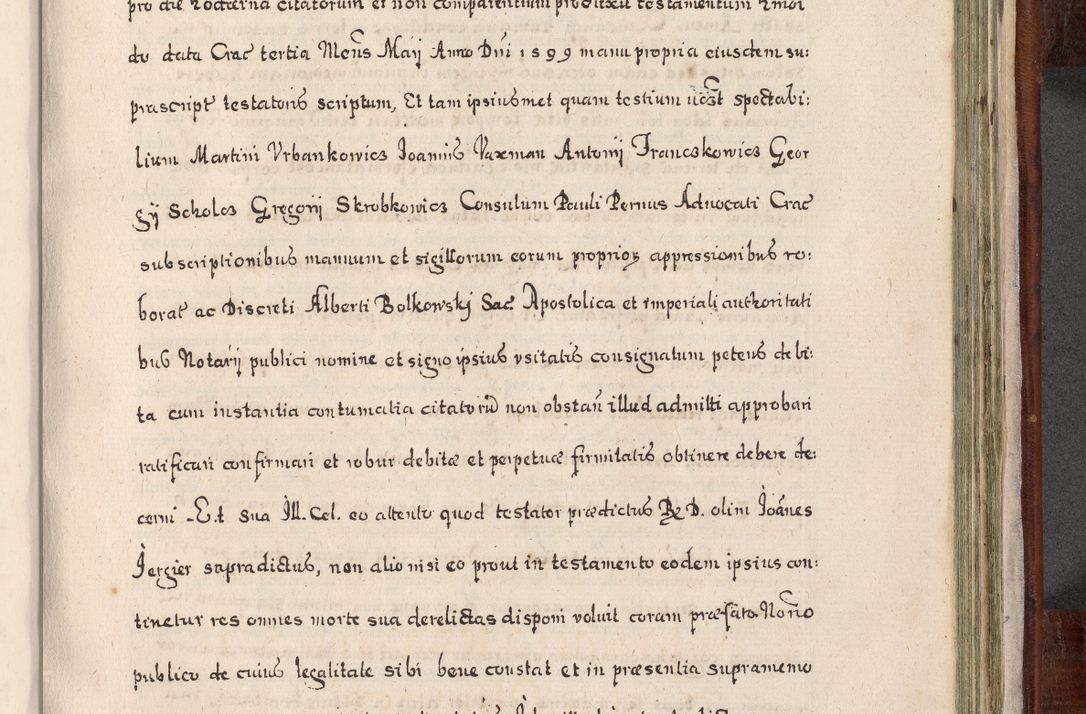 pro die hodierna citatorum et non comparentium produxit testamentum
do data Crac tertia Mens Maij Anno Dni 1599 manu propria eiusdem su:
prascript testatoris scriptum, Et tam ipsiusmet quam testium spectabi:
lium Martini Vrbankowicz Joannis Vaxman Antonij Franczkowicz Geor
gij Scholcz Gregorij Skrobkowicz Consulum Pauli Pernus Aduocati Crac
subscriptionibus manuum et sigillorum eorum proprioꝝ appressionibus ro:
borat ac Discreti Alberti Bolkowskj Sac. Apostolica et imperiali authoritati
bus Notarij publici nomine et signo ipsius vsitatis consignatum petens debi:
ta cum instantia contumatia citatorū non obstan̄ illud admitti approbari
ratificari confirmari et robur debitæ et perpetuæ firmitatis obtinere debere de:
cerni Et sua Ill. Cel. eo attento quod testator prædictus R D. olim Joānes
Jergier supradictus, non alio nisi eo prout in testamento eodem ipsius con:
tinetur res omnes morte sua derelictas disponi voluit coram præfāto Norio
publico de cuius legalitate sibi bene constat et in præsentia supramemo